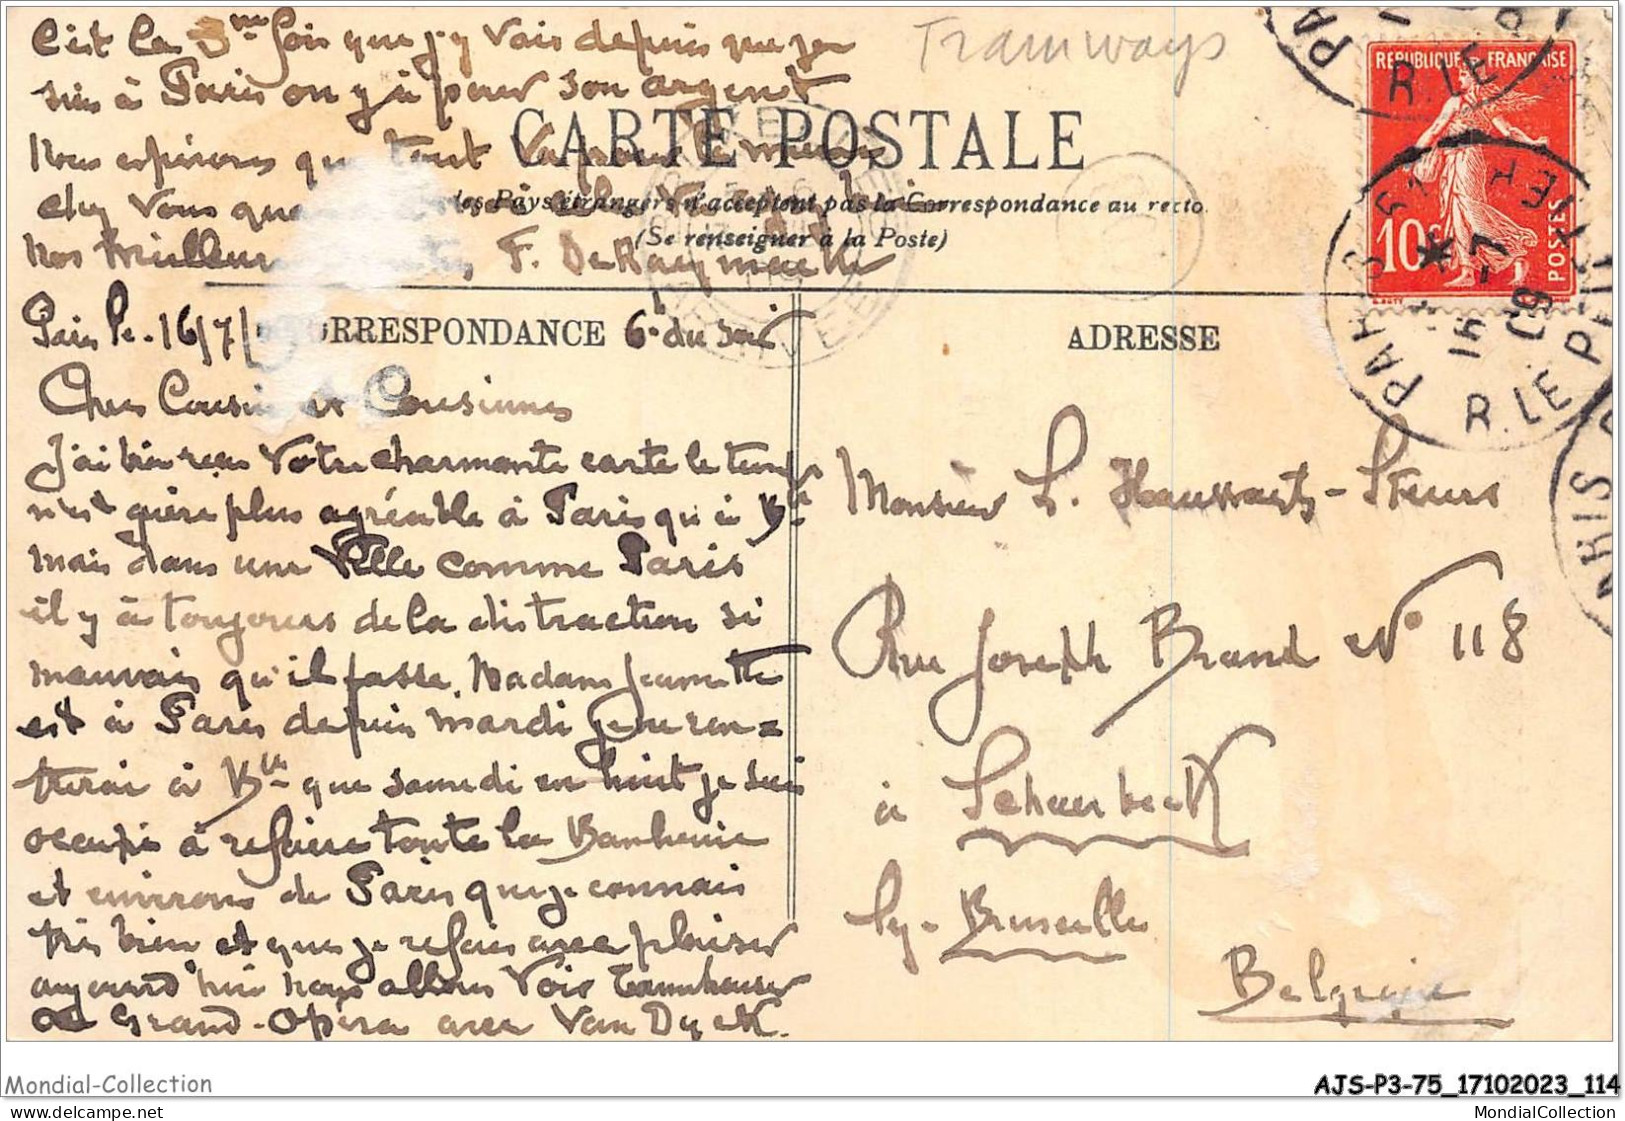 C'est la 3me fois que j'y vais depuis que je
suis à Paris on y à pour son argent
Nous espérons que tout va pour le mieux
chez vous
nos meilleurs F. DeRaeymaeker
Tramways
CARTE POSTALE
les Pays étrangers n'acceptent pas la Correspondance au recto
(Se renseigner à la Poste)
REPUBLIQUE FRANÇAISE
10c
POSTES
PARIS
R. LE
PARIS
16 - 7
09
R. LE PELETIER
PARIS
Paris le 16/7/ CORRESPONDANCE 6h du soir
ADRESSE
Chers Cousins et Cousinnes
J'ai bien reçu votre charmante carte le temps
n'est guère plus agréable à Paris qu'à Blle
mais dans une Ville comme Paris
il y à toujours de la distraction si
mauvais qu'il fasse. Madame Jeannette
est à Paris depuis mardi je ne ren=
trerai à Blle que samedi en huit je suis
occupé à refaire toute la Banlieuie
et environs de Paris que je connais
très bien et que je refais avec plaisir
aujourd'hui nous allons voir Tannhauser
au Grand-Opéra avec Van Dyck.
Monsieur L. Haussaerts-Steurs
Rue Joseph Brand N° 118
à Schaerbeek
lez-Bruxelles
Belgique
Mondial-Collection
AJS-P3-75_17102023_114
delcampe.net
MondialCollection